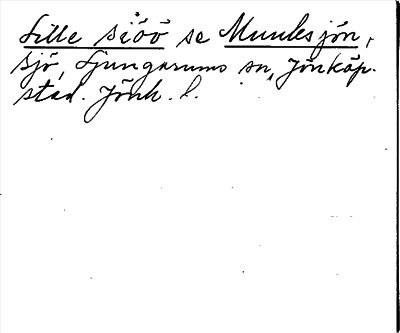 Lille siöö se Munksjön,
sjö, Ljungarums sn, Jönköp.
stad. Jönk. l.